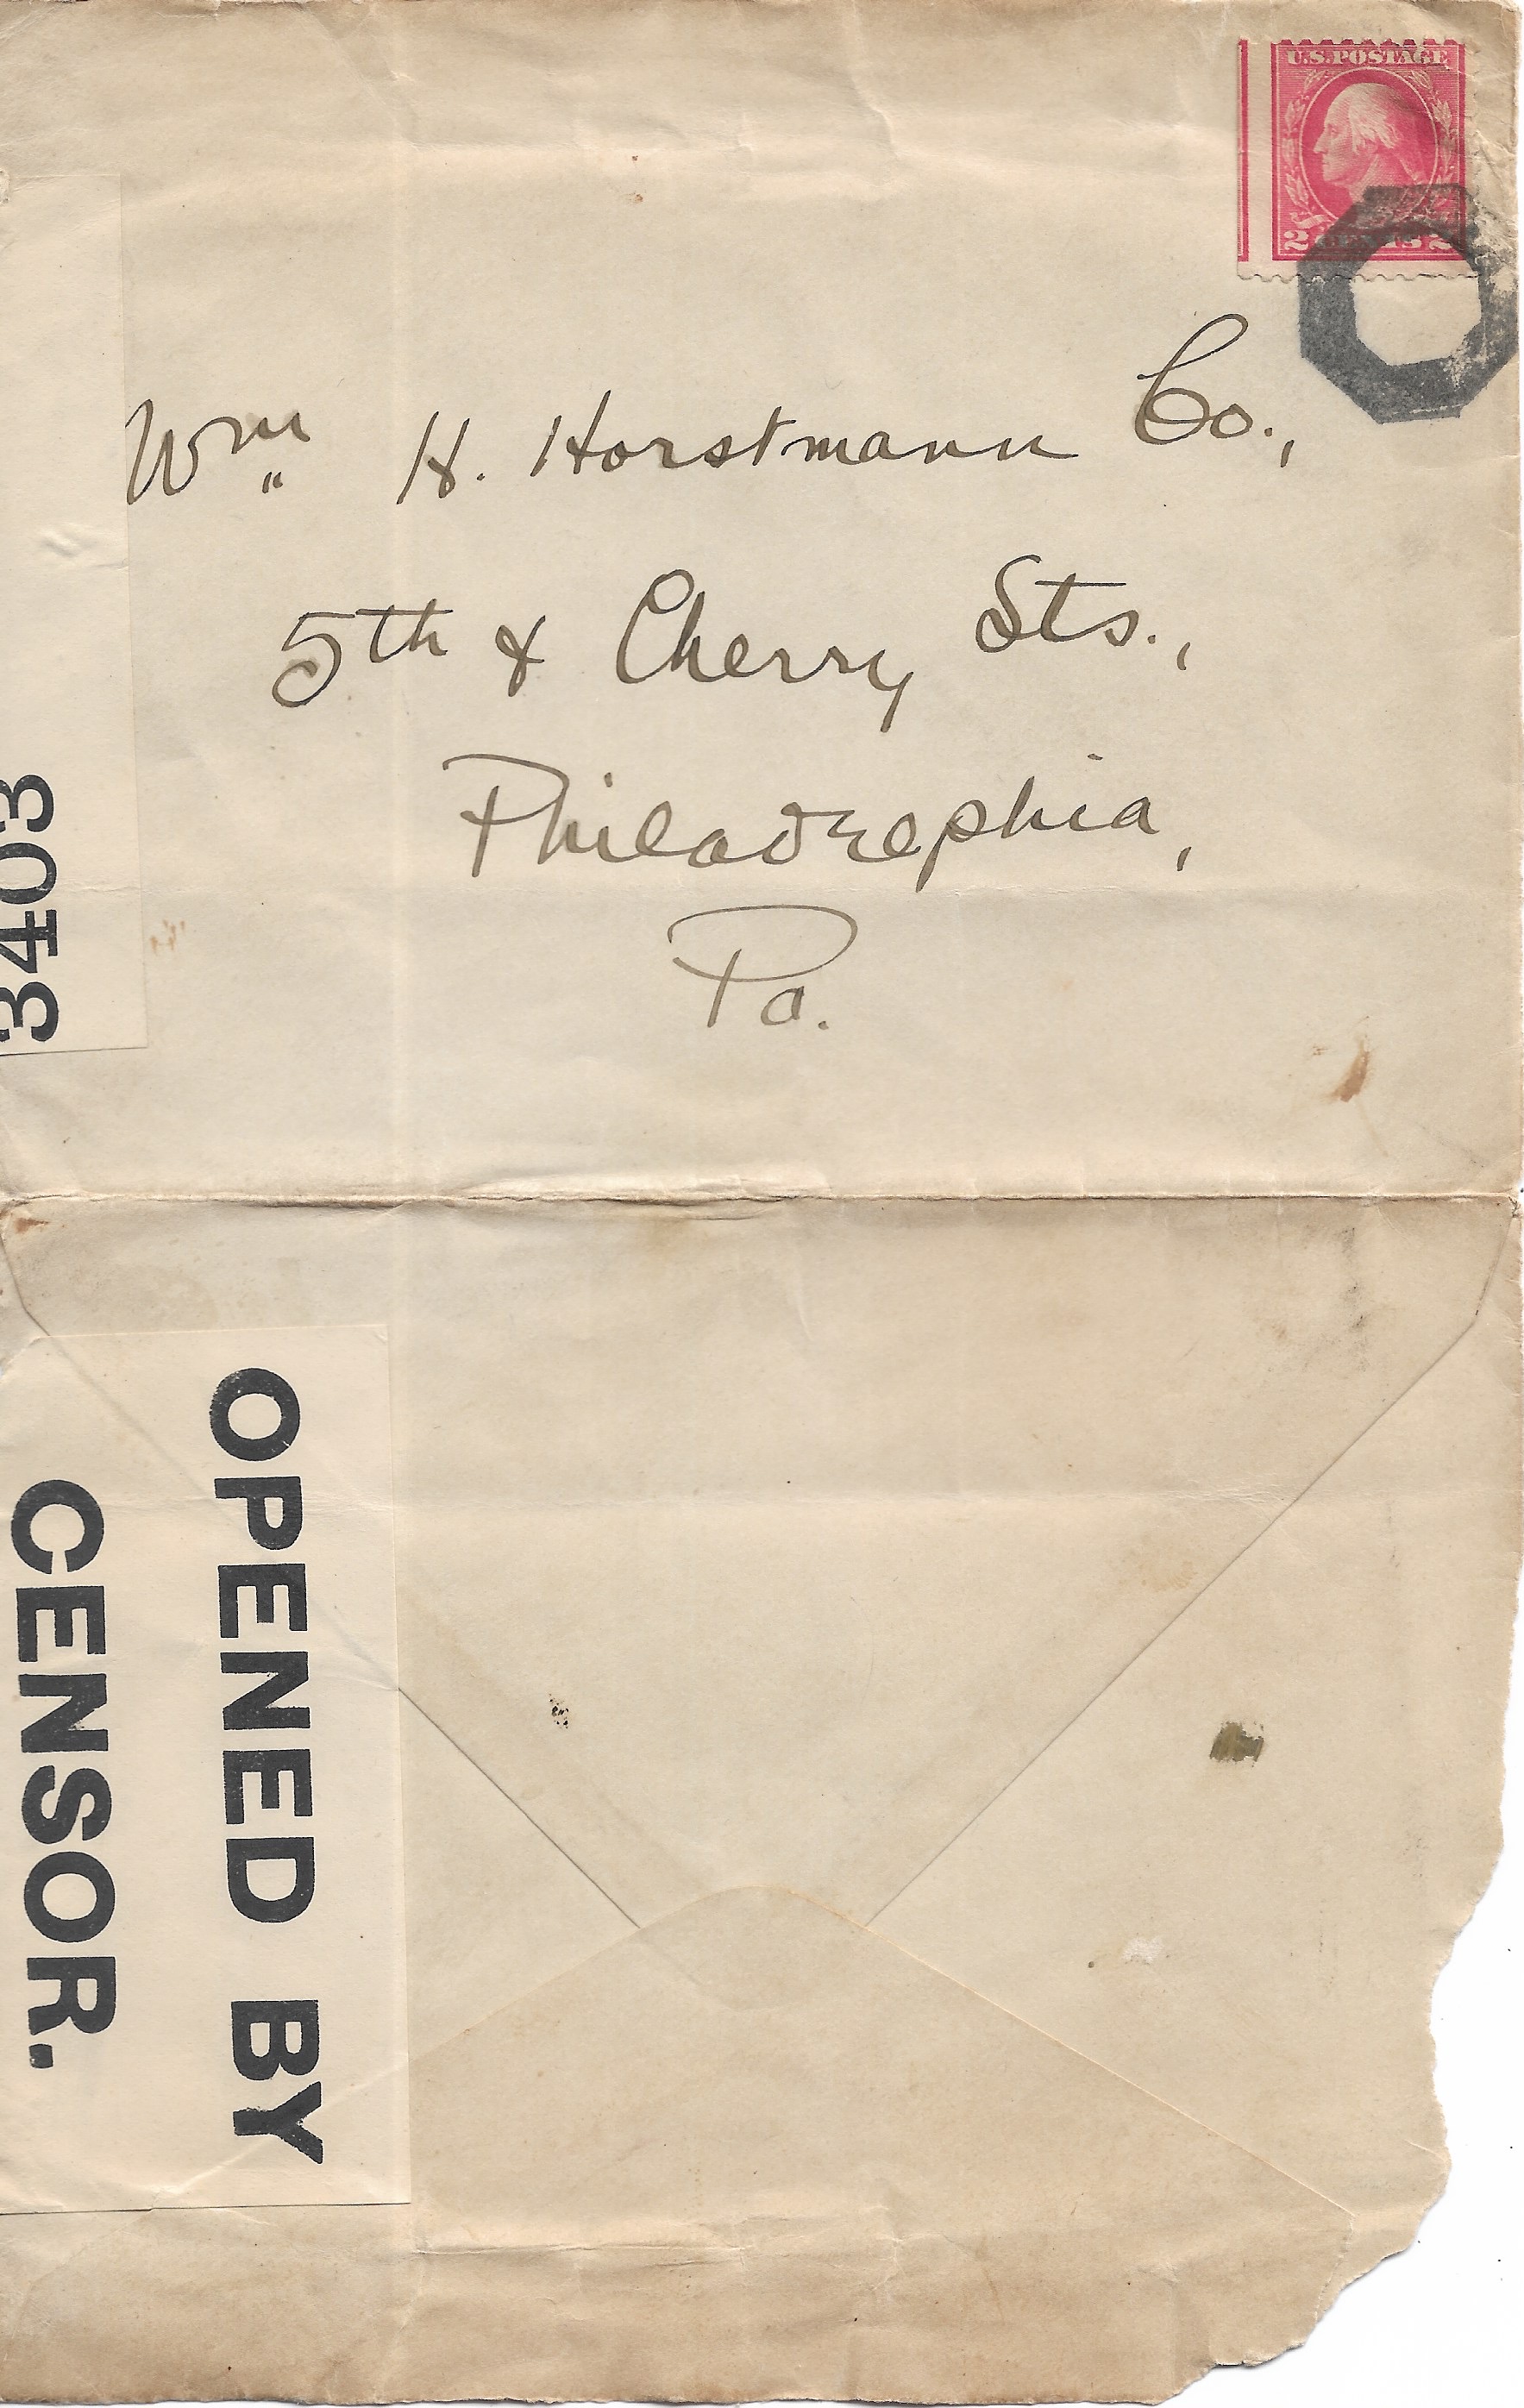 U.S. POSTAGE
2 CENTS 2
Wm H. Horstmann Co.,
5th & Cherry Sts.,
Philadelphia,
Pa.
3403
OPENED BY
CENSOR.